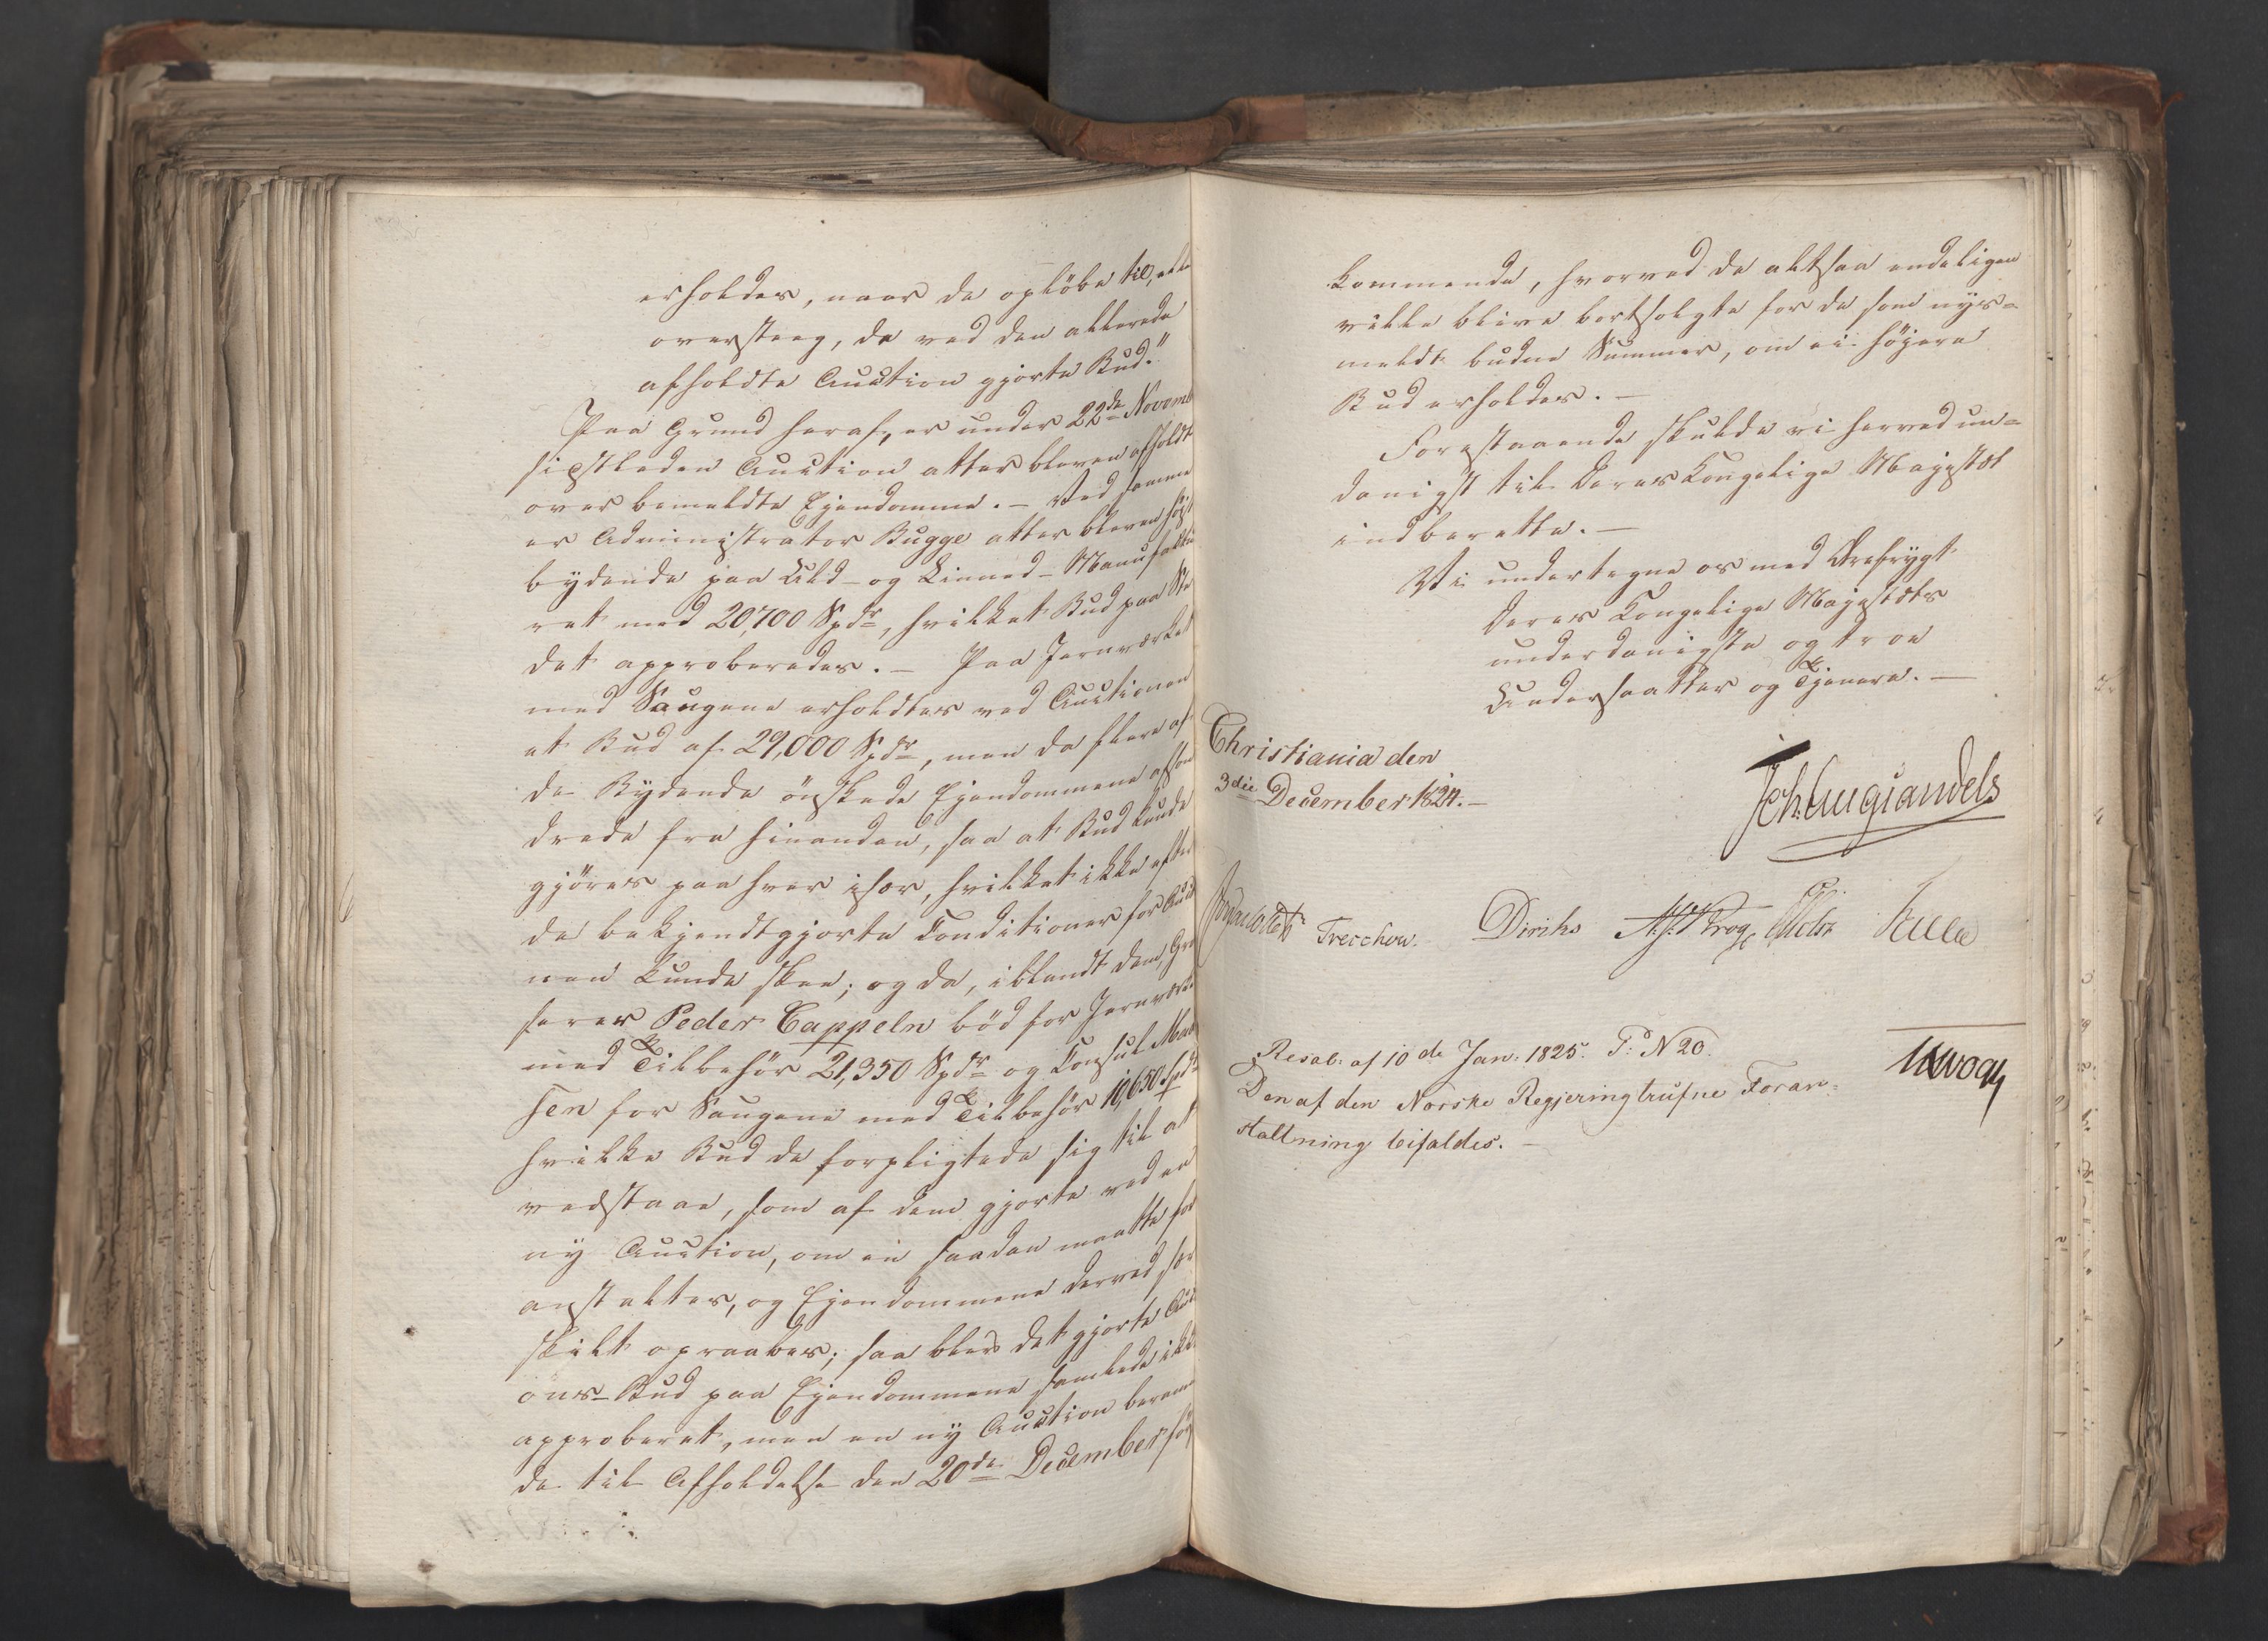 erholdes, naar de opløbe til, eller
oversteeg, de ved den allerede
afholdte Auction gjorte Bud."
Paa Grund heraf, er under 22de Novemb
sidstleden Auction atter bleven afholdt
over bemeldte Ejendomme. – Ved samme
er Administrator Bugge atter bleven høist
bydende paa Uld- og Linned-Manufaktu
ret med 20,700 Spdr, hvilket Bud paa Ste
det approberedes. – Paa Jernværket
med Saugene erholdtes ved Auctionen
et Bud af 29,000 Spdr, men da flere af
de Bydende ønskede Ejendommene afson
drede fra hinanden, saa at Bud kunde
gjøres paa hver især, hvilket ikke efter
de bekjendtgjorte Conditioner for Auctio
nen kunde skee; og da, iblandt dem, Gros
serer Peder Cappeln bød for Jernværket
med Tilbehør 21,350 Spdr og Consul
sen for Saugene med Tilbehør 10,650 Spdr
hvilke Bud de forpligtede sig til at
vedstaae, som af dem gjorte ved en
ny Auction, om en saadan maatte for
anstaltes, og Ejendommene derved sær
skilt opraabes; saa blev det gjorte Aucti
ons-Bud paa Ejendommene samlede ikke
approberet, men en ny Auction berame
de til Afholdelse den 20de December før
kommende, hvorved de altsaa endeligen
ville blive bortsolgte for de som nys-
meldt budne Summer, om ei høiere
Bud erholdes. –
Forestaaende skulde vi herved un-
danigst til Deres Kongelige Majestæt
indberette. –
Vi undertegne os med Ærefrygt
Deres Kongelige Majestæts
underdanigste og troe
Undersaatter og Tjenere. –
Christiania den
3die December 1824. –
Treschow. Diriks Krog
Resol: af 10de Jan: 1825. P: N 20.
Den af den Norske Regjering trufne Foran-
staltning bifaldes. –